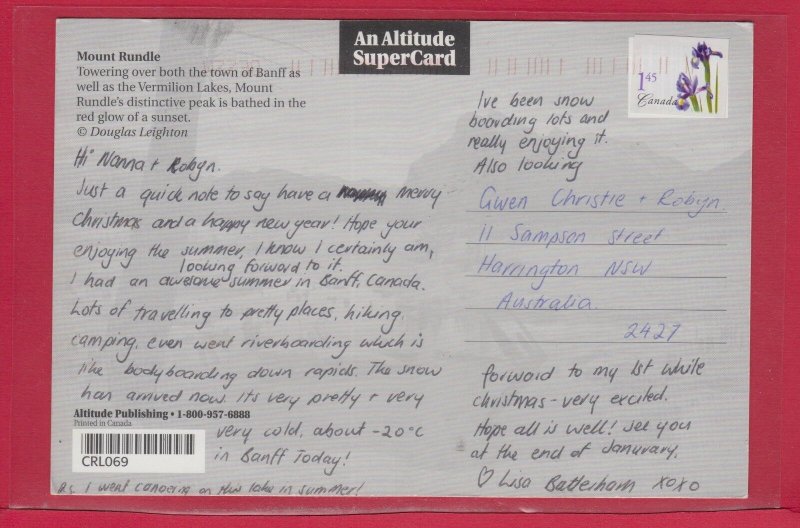 Mount Rundle
Towering over both the town of Banff as
well as the Vermilion Lakes, Mount
Rundle's distinctive peak is bathed in the
red glow of a sunset.
© Douglas Leighton
An Altitude
SuperCard
1 45
Canada
Hi Nanna + Robyn.
Just a quick note to say have a merry
christmas and a happy new year! Hope your
enjoying the summer, I know I certainly am,
looking forward to it.
I had an awesome summer in Banff, Canada.
Lots of travelling to pretty places, hiking,
camping, even went riverboarding which is
like bodyboarding down rapids. The snow
has arrived now. Its very pretty + very
Altitude Publishing • 1-800-957-6888
Printed in Canada
CRL069
very cold, about -20°C
in Banff Today!
Ps. I went canoeing on this lake in summer!
I've been snow
boarding lots and
really enjoying it.
Also looking
Gwen Christie + Robyn.
11 Sampson Street
Harrington NSW
Australia.
2427
forward to my 1st white
christmas - very excited.
Hope all is well! see you
at the end of Janurary.
♡ Lisa Batterham xoxo